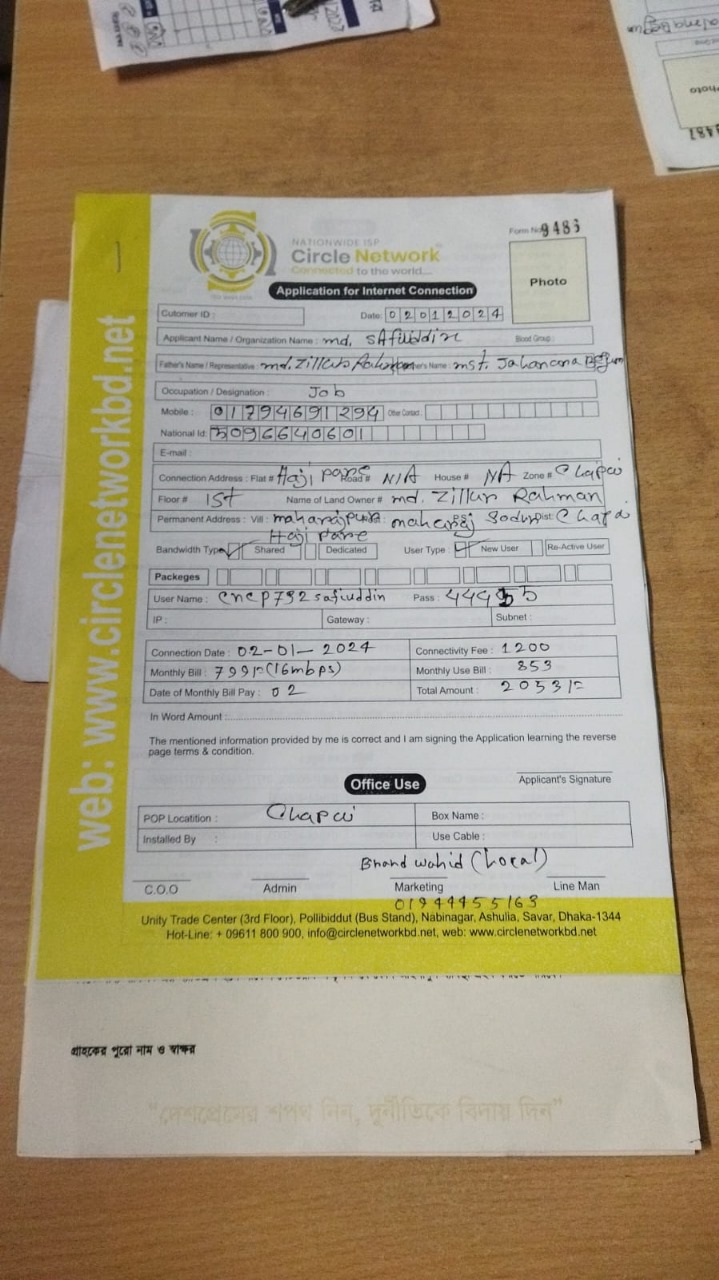 web: www.circlenetworkbd.net
NATIONWIDE ISP
Circle Network
Connected to the world....
Form No 9483
Photo
Application for Internet Connection
Cutomer ID :
Date: 02012024
Applicant Name / Organization Name : md. SAfuddin Blood Group :
Father's Name / Representative : md. Zillur Rahman Mother's Name : mst. Jahanara Begum
Occupation / Designation : Job
Mobile : 01794691294 Other Contact :
National Id: 3096640601
E-mail :
Connection Address : Flat # Haji para Road # N/A House # NA Zone # Chapai
Floor # 1st Name of Land Owner # md. Zillur Rahman
Permanent Address : Vill : maharajpur maharaj Sodur Dist: Chapai
Haji Para
Bandwidth Type Shared Dedicated User Type : New User Re-Active User
Packeges
User Name : cncp792safiuddin Pass : 444
IP : Gateway : Subnet :
Connection Date : 02-01-2024 Connectivity Fee : 1200
Monthly Bill : 799/= (16mbps) Monthly Use Bill : 853
Date of Monthly Bill Pay : 02 Total Amount : 2053/=
In Word Amount :
The mentioned information provided by me is correct and I am signing the Application learning the reverse
page terms & condition.
Applicant's Signature
Office Use
POP Locatition : Chapai Box Name :
Installed By : Use Cable :
Brand wahid (Local)
C.O.O Admin Marketing Line Man
01944455163
Unity Trade Center (3rd Floor), Pollibiddut (Bus Stand), Nabinagar, Ashulia, Savar, Dhaka-1344
Hot-Line: + 09611 800 900, info@circlenetworkbd.net, web: www.circlenetworkbd.net
গ্রাহকের পুরো নাম ও স্বাক্ষর
"দেশপ্রেমের শপথ নিন, দুর্নীতিকে বিদায় দিন"